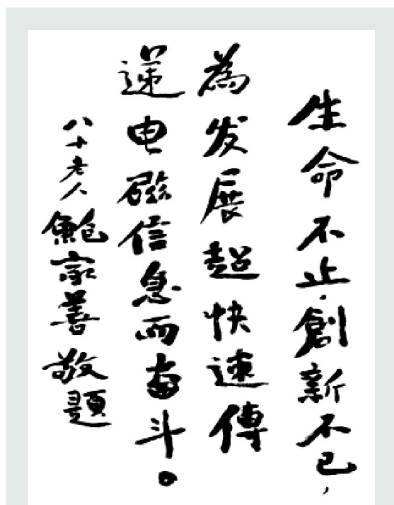 生命不止，創新不已，
為发展超快速傳
递电磁信息而奋斗。
八十老人 鮑家善 敬題